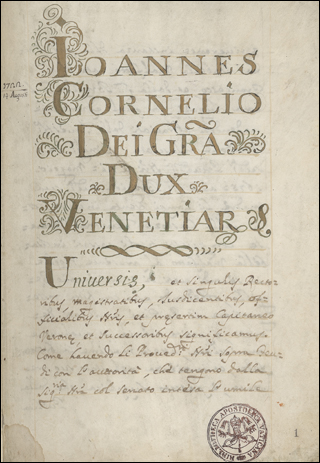 IOANNES
CORNELIO
DEI GRÃA
DUX
VENETIAR &
1722.
Universis, et singulis Recto-
ribus magistratibus, Iusdicentibus, of-
ficialibus Nris, et presertim Capitaneo
Verone, et Successoribus significamus.
Come havendo li Proved.ri Nri sopra Feu-
di con l'autorità, che tengono dalla
Sig.ria Nra col Senato intesa l'humile
BIBLIOTHECA APOSTOLICA VATICANA
1